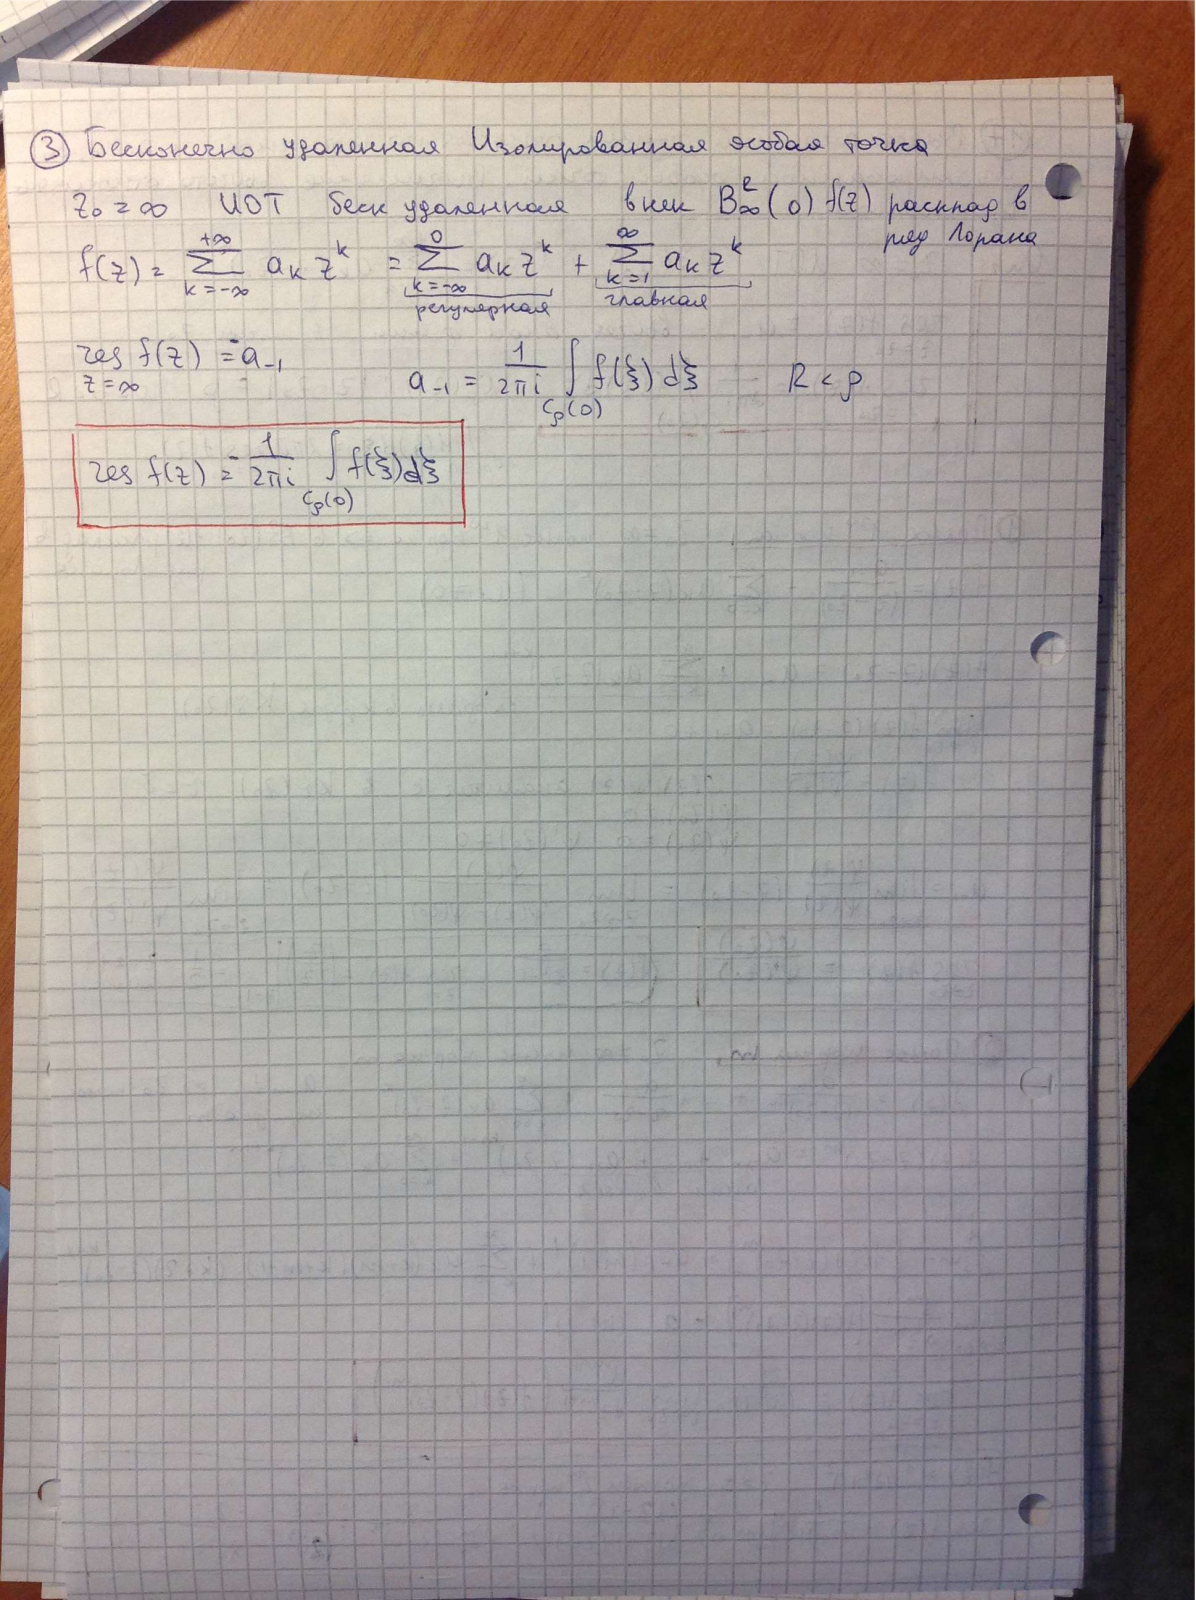 ③ Бесконечно удаленная Изолированная особая точка
z₀ = ∞ ИОТ беск удаленная в нек B_∞^R(0) f(z) расклад в
ряд Лорана
f(z) = \sum_{k=-∞}^{+∞} a_k z^k = \sum_{k=-∞}^{0} a_k z^k + \sum_{k=1}^{∞} a_k z^k
регулярная главная
res_{z=∞} f(z) = -a_{-1} a_{-1} = \frac{1}{2πi} \int_{C_ρ(0)} f(ξ) dξ R < ρ
res f(z) = -\frac{1}{2πi} \int_{C_ρ(0)} f(ξ) dξ